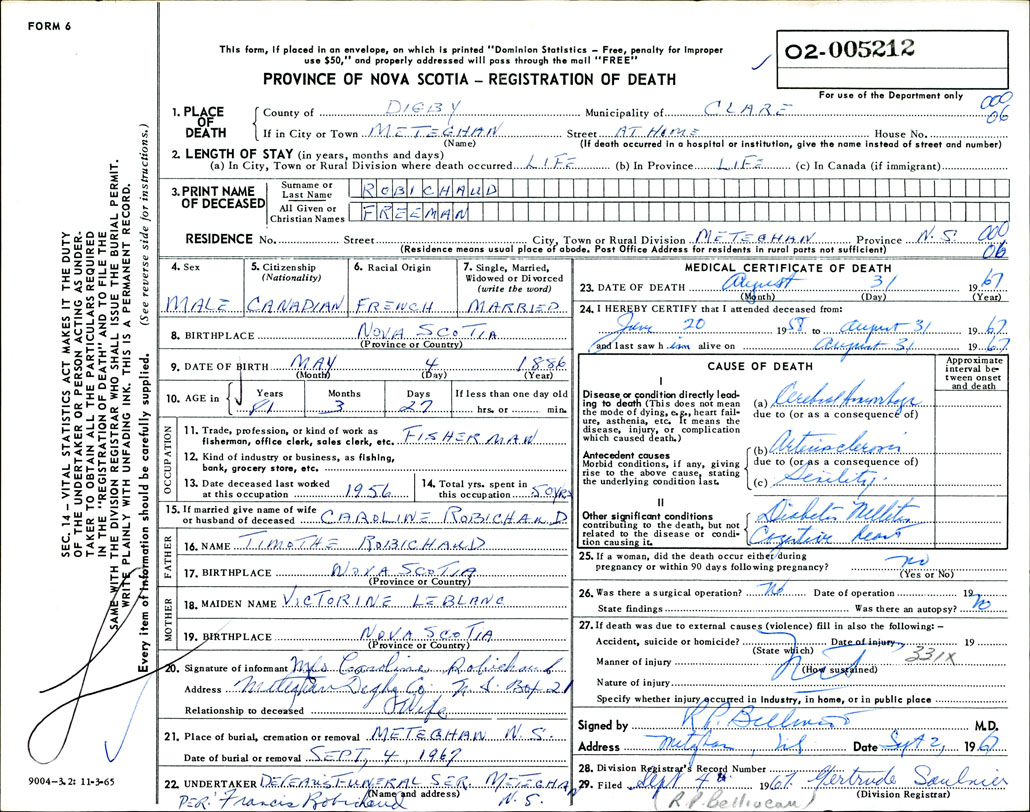 FORM 6
This form, if placed in an envelope, on which is printed "Dominion Statistics – Free, penalty for improper
use $50," and properly addressed will pass through the mail "FREE"
PROVINCE OF NOVA SCOTIA – REGISTRATION OF DEATH
02-005212
For use of the Department only
000
06
SEC. 14 – VITAL STATISTICS ACT MAKES IT THE DUTY
OF THE UNDERTAKER OR PERSON ACTING AS UNDER-
TAKER TO OBTAIN ALL THE PARTICULARS REQUIRED
IN THE "REGISTRATION OF DEATH" AND TO FILE THE
SAME WITH THE DIVISION REGISTRAR WHO SHALL ISSUE THE BURIAL PERMIT.
WRITE PLAINLY WITH UNFADING INK. THIS IS A PERMANENT RECORD.
Every item of information should be carefully supplied. (See reverse side for instructions.)
1. PLACE OF DEATH
County of DIGBY Municipality of CLARE
If in City or Town METEGHAN Street AT HOME House No.
(Name) (If death occurred in a hospital or institution, give the name instead of street and number)
2. LENGTH OF STAY (in years, months and days)
(a) In City, Town or Rural Division where death occurred LIFE (b) In Province LIFE (c) In Canada (if immigrant)
3. PRINT NAME OF DECEASED
Surname or Last Name ROBICHAUD
All Given or Christian Names FREEMAN
RESIDENCE No. Street City, Town or Rural Division METEGHAN Province N.S.
000
06
(Residence means usual place of abode. Post Office Address for residents in rural parts not sufficient)
4. Sex MALE
5. Citizenship (Nationality) CANADIAN
6. Racial Origin FRENCH
7. Single, Married, Widowed or Divorced (write the word) MARRIED
8. BIRTHPLACE NOVA SCOTIA
(Province or Country)
9. DATE OF BIRTH MAY 4 1886
(Month) (Day) (Year)
10. AGE in Years Months Days If less than one day old
81 3 27 hrs. or min.
OCCUPATION
11. Trade, profession, or kind of work as
fisherman, office clerk, sales clerk, etc. FISHERMAN
12. Kind of industry or business, as fishing,
bank, grocery store, etc.
13. Date deceased last worked
at this occupation 1956
14. Total yrs. spent in
this occupation 50 YRS
15. If married give name of wife
or husband of deceased CAROLINE ROBICHAUD
FATHER
16. NAME TIMOTHE ROBICHAUD
17. BIRTHPLACE NOVA SCOTIA
(Province or Country)
MOTHER
18. MAIDEN NAME VICTORINE LEBLANC
19. BIRTHPLACE NOVA SCOTIA
(Province or Country)
20. Signature of informant Mrs Caroline Robichaud
Address Meteghan Digby Co N.S. Box 21
Relationship to deceased Wife
21. Place of burial, cremation or removal METEGHAN N.S.
Date of burial or removal SEPT, 4, 1967
22. UNDERTAKER FUNERAL SER. METEGHAN
(Name and address) N.S.
PER: Francis Robichaud
9004-3.2: 11-3-65
MEDICAL CERTIFICATE OF DEATH
23. DATE OF DEATH August 31 1967
(Month) (Day) (Year)
24. I HEREBY CERTIFY that I attended deceased from:
20 1958 to August 31 1967
and last saw him alive on August 31 1967
CAUSE OF DEATH
Approximate interval between onset and death
I
Disease or condition directly lead-
ing to death (This does not mean
the mode of dying, e.g., heart fail-
ure, asthenia, etc. It means the
disease, injury, or complication
which caused death.)
(a) Cerebral
due to (or as a consequence of)
Antecedent causes
Morbid conditions, if any, giving
rise to the above cause, stating
the underlying condition last.
(b) Arteriosclerosis
due to (or as a consequence of)
(c) Senility.
II
Other significant conditions
contributing to the death, but not
related to the disease or condi-
tion causing it.
Diabetes Mellitus
25. If a woman, did the death occur either during
pregnancy or within 90 days following pregnancy? no
(Yes or No)
26. Was there a surgical operation? No Date of operation 19
State findings Was there an autopsy? No
27. If death was due to external causes (violence) fill in also the following: –
Accident, suicide or homicide? Date of injury 19
(State which) 331X
Manner of injury
(How sustained)
Nature of injury
Specify whether injury occurred in Industry, in home, or in public place
Signed by M.D.
Address Meteghan, NS Date Sept 2, 1967
28. Division Registrar's Record Number
29. Filed Sept 4th 1967. Gertrude Saulnier
(R.P. Belliveau) (Division Registrar)